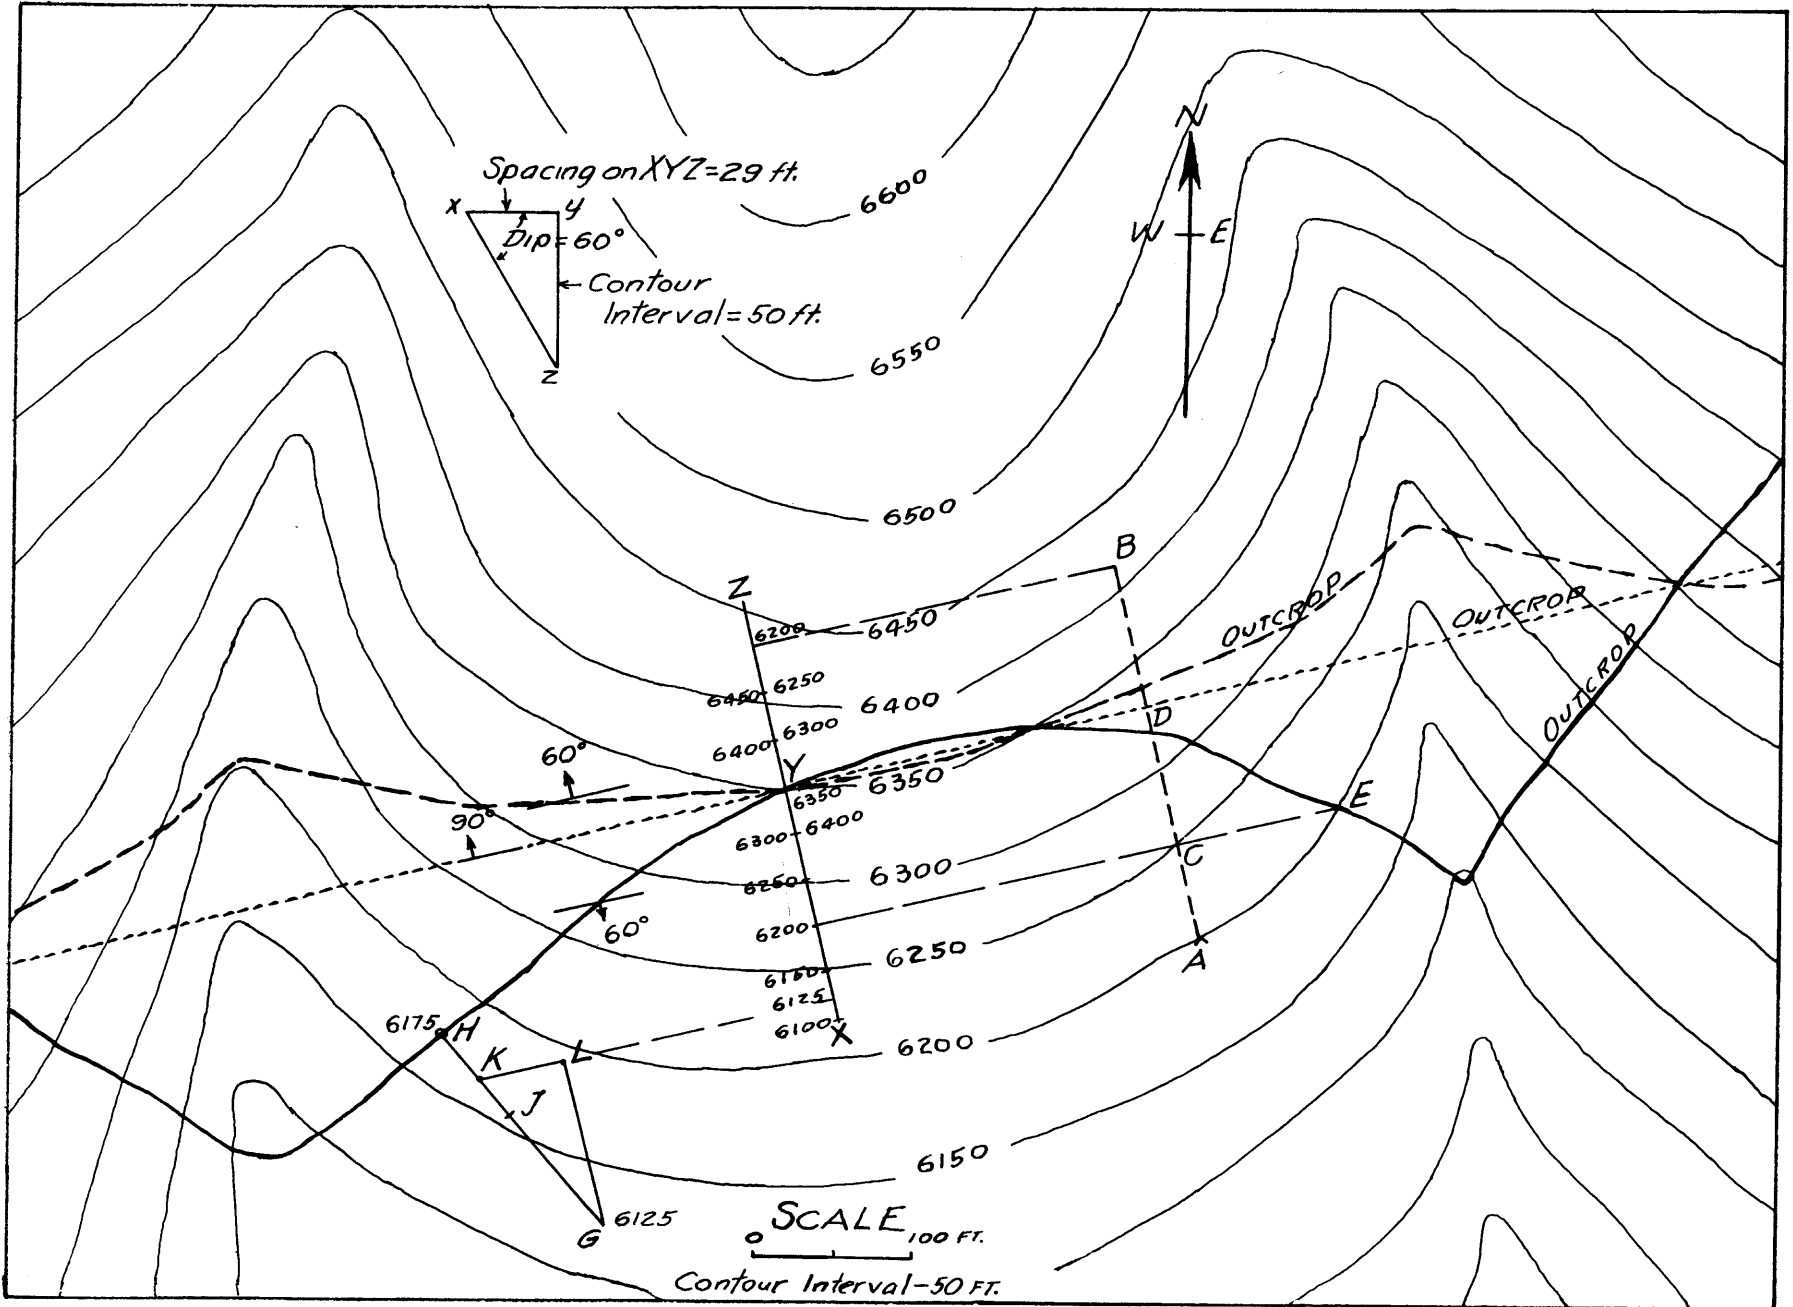 Spacing on XYZ=29 ft.
X
Y
Dip=60°
Contour
Interval=50 ft.
Z
6600
N
W
E
6550
6500
B
Z
6200
6450
OUTCROP
OUTCROP
OUTCROP
6450
6250
6400
6400
6300
D
60°
Y
6350
6350
E
90°
6300
6400
C
6250
6300
60°
6200
6250
A
6150
6125
6100
X
6175
H
K
L
6200
J
6150
G
6125
SCALE
0
100 FT.
Contour Interval-50 FT.